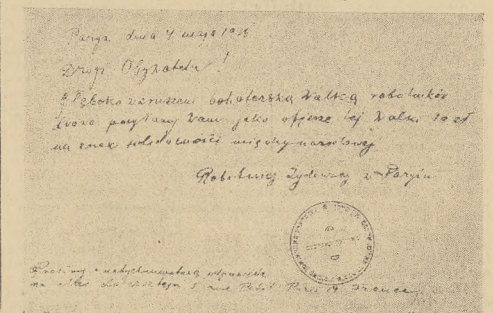 Paryż dnia 4 maja 1936
Drogi Obywatelu!
Głęboko wzruszeni bohaterską walką robotników
Lwowa posyłamy Wam jako ofierze tej walki 10 zł
na znak solidarności międzynarodowej
Robotnicy Żydowscy w Paryżu
Prosimy o natychmiastową odpowiedź
na adres 5 rue Petit Paris 19 France